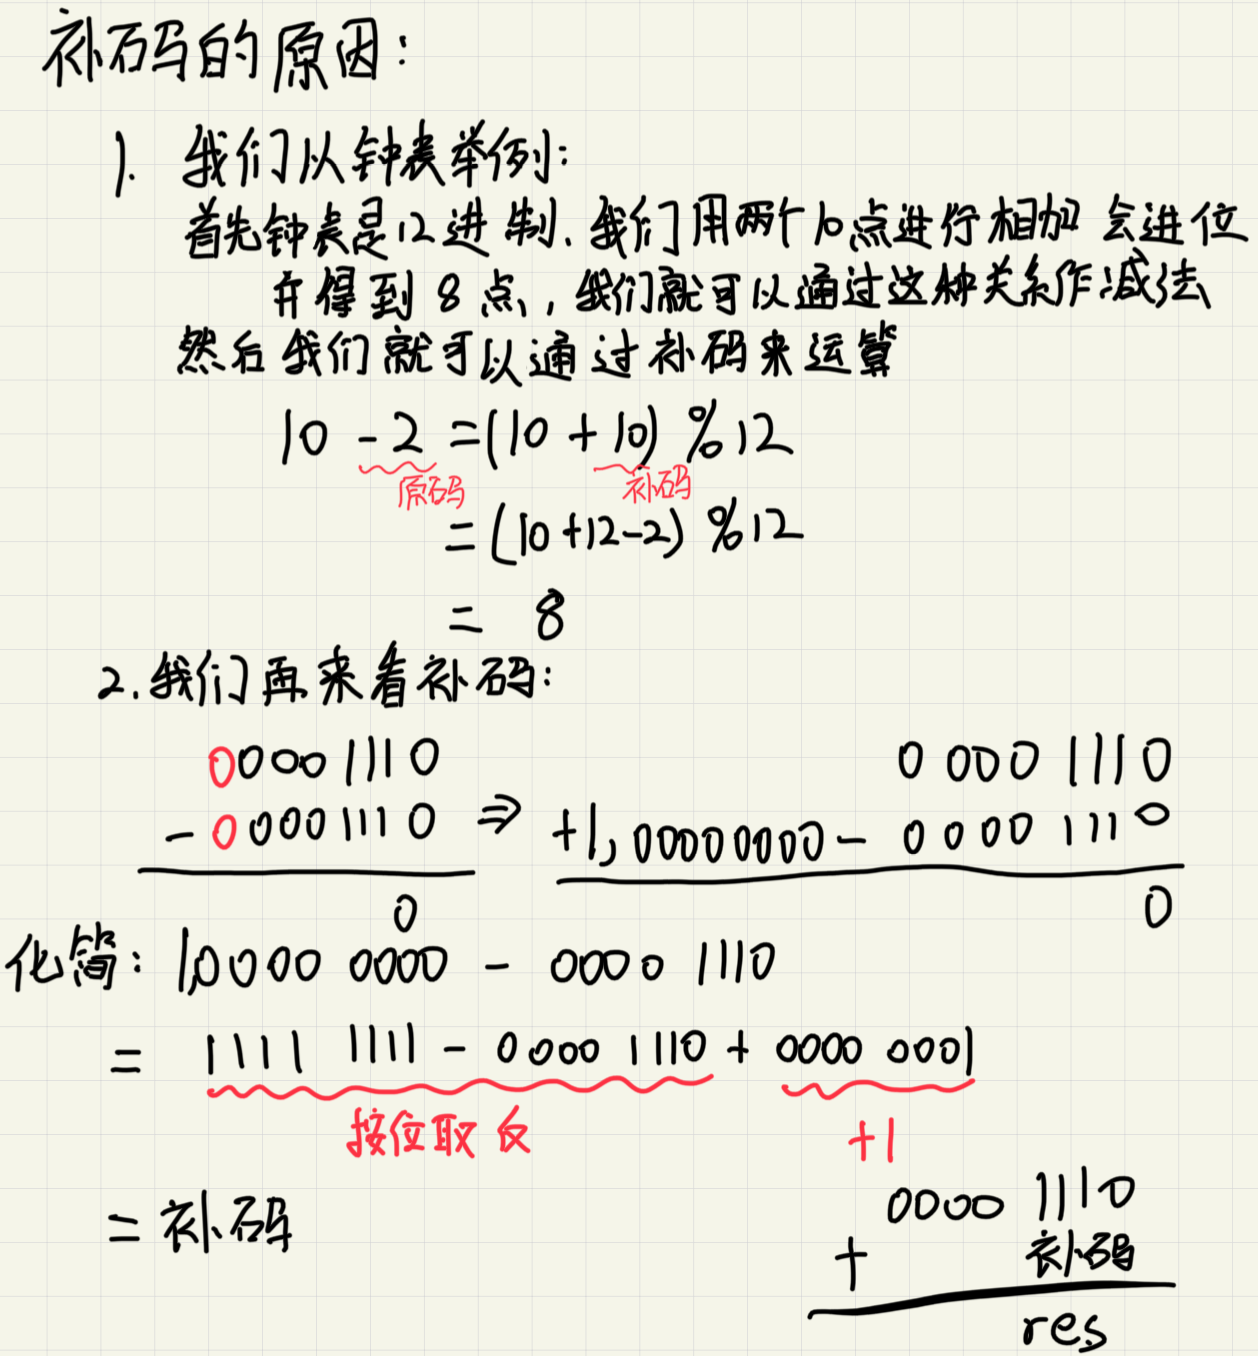 补码的原因：
1. 我们以钟表举例：
首先钟表是12进制. 我们用两个10点进行相加 会进位
并得到 8 点，我们就可以通过这种关系作减法
然后我们就可以通过补码来运算
10 - 2 = (10 + 10) % 12
原码 补码
= (10 + 12 - 2) % 12
= 8
2. 我们再来看补码：
0000 1110 0 000 1110
- 0 0001110 ⇒ +1,00000000 - 0000 1110
0 0
化简：1,0000 0000 - 0000 1110
= 1111 1111 - 0000 1110 + 0000 0001
按位取反 +1
= 补码
0000 1110
+ 补码
res